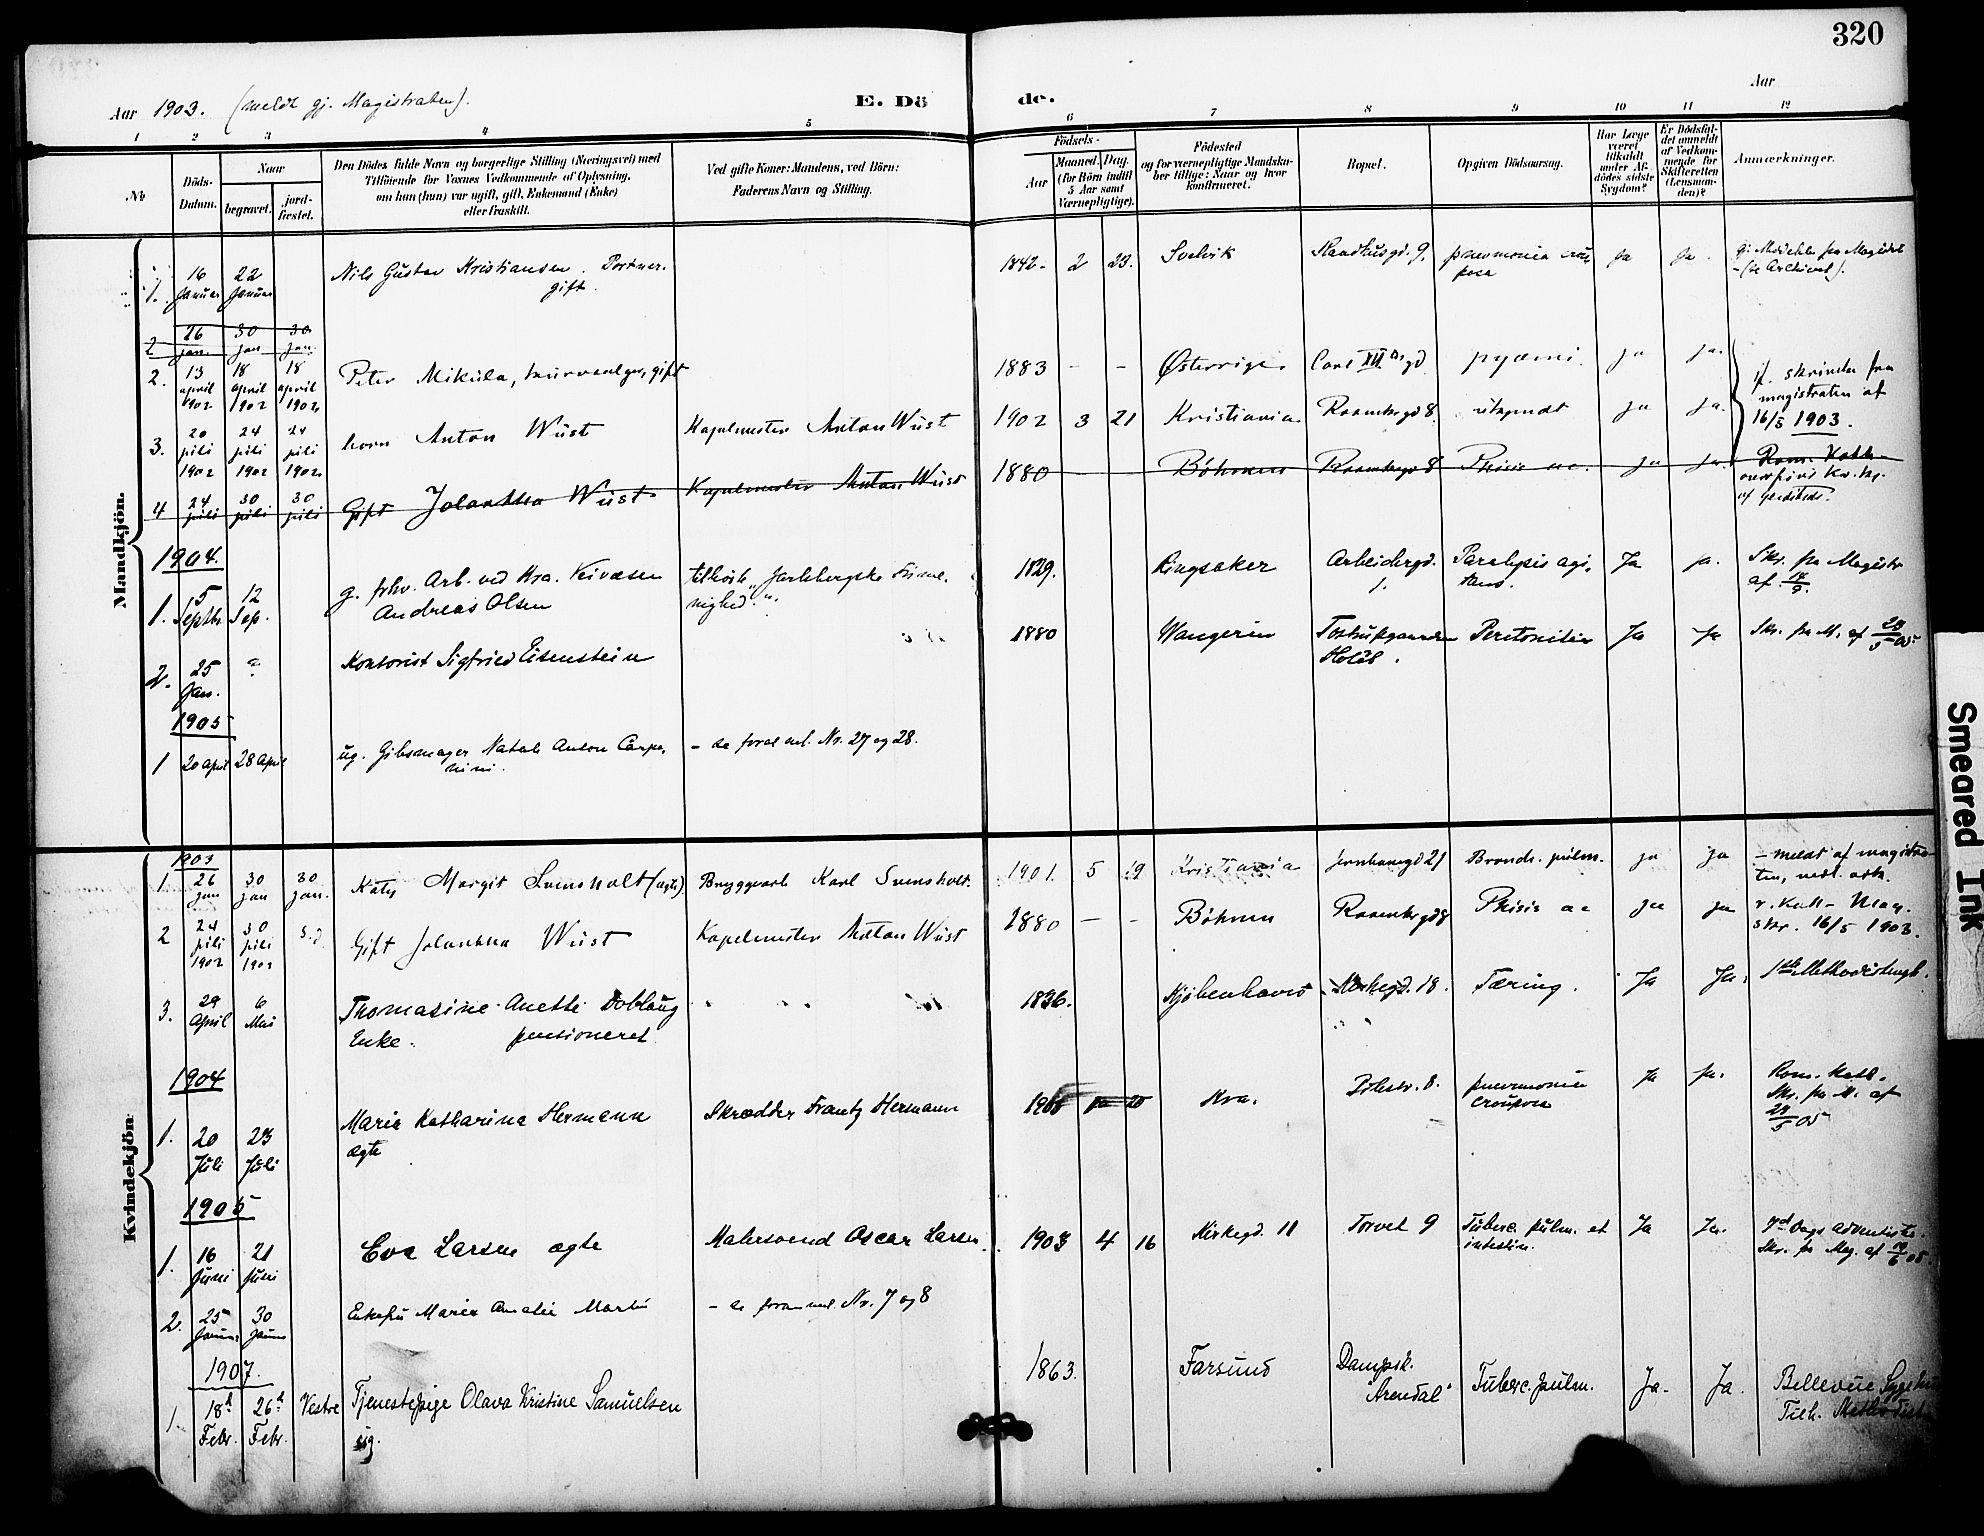 320
Aar 1903. (meldt gj. Magistraten).
E. Dö
de.
Aar
1 2 3 4 5 6 7 8 9 10 11 12
No
Döds-
Datum.
Naar
begravet.
jord-
fæstet.
Den Dödes fulde Navn og borgerlige Stilling (Næringsvei) med
Tilföiende for Voxnes Vedkommende af Oplysning,
om han (hun) var ugift, gift, Enkemand (Enke)
eller fraskilt.
Ved gifte Koner: Mandens, ved Börn:
Faderens Navn og Stilling.
Födsels-
Aar
Maaned. Dag.
(for Börn indtil
5 Aar samt
Værnepligtige).
Födested
og for værnepligtige Mandska-
ber tillige: Naar og hvor
konfirmeret.
Bopæl.
Opgiven Dödsaarsag.
Har Læge
været
tilkaldt
under Af-
dödes sidste
Sygdom?
Er Dödsfal-
det anmeldt
af Vedkom-
mende for
Skifteretten
(Lensman-
den)?
Anmærkninger.
Mandkjön.
1. 16 Januar 22 Januar Nils Gustav Kristiansen. Portner. gift. 1842 - 2 29. Svelvik 9. pneumonia crou posa Ja Ja. (se Archivet).
2 26 jan. 30 jan 30 jan.
2. 13 april 1902 18 april 1902 18 april 1902 Peter Mikula, gift 1883 - - Østerrige Carl XII gd pyæmi ja ja.
if. skrivelse fra
magistraten af
16/5 1903.
3. 20 juli 1902 24 juli 1902 24 juli 1902 barn Anton Wüst Kapelmester Anton Wüst 1902 3 21 Kristiania 8. ja ja.
4 24 juli 30 juli 30 juli Gift Johanna Wüst Kapelmester Anton Wüst 1880 Böhmen 8 Phisis ja ja. Rom. Kath.
1904.
1. 5 Septbr. 12 Sep. g. fhv. Arb. ved Kra. Veivæsen
Andreas Olsen
tilhørte "Jarlsbergske Frime-
nighed".
1829. Ringsaker Arbeidergd. 1. Paralysis agi-
tans. Ja ja. Skr. fra Magistr.
af 14/9.
2. 25 Jan. ? Kontorist Sigfried Eisenstein 1880 Wangerin Hotel. Peritonitis Ja Ja Skr. fra M. af 28/5 05
1905
1 20 April 28 April ug. Gibsmager Natale Anton
- se foran anl. Nr. 27 og 28.
Kvindekjön
1903
1. 26 jan 30 jan 30 jan. Katy Margit Svensholt (ægte). Bryggearb Karl Svensholt. 1901. 5 19 Kristiania 21 Bronch. pulm. ja ja - meldt af magistra-
ten,
2 24 juli 1902 30 juli 1902 s.d. Gift Johanna Wüst Kapelmester Anton Wüst 1880 - - Böhmen 8 Phisis ja ja r. kath - Mag.
skr. 16/5 1903.
3. 29 April 6 Mai Thomasine Anette Doblaug
Enke. pensioneret
1836. Kjøbenhavn 18. Tæring. Ja Ja.
1904
1. 20 Juli 23 Juli Maria Katharina Hermann
ægte
Skrædder Frantz Hermann Kra. 8. pneumonia
crouposa Ja Ja. Rom. kath.
Skr. fra M. af
28/5 05
1905
1. 16 Juni 21 Juni Eva Larsen ægte Malersvend Oscar Larsen. 1903 4 16 Kirkegd. 11 Torvet 9 Tuberc. pulm. et
intestin. Ja Ja. 7d Dags Adventists.
Skr. fra Mag. af
2. 25 30 Enkefru Marie Amalie
- se foran anl. Nr. 7 og 8
1907.
1. 18d Febr. 26d Febr. Vestre Tjenestepige Olava Kristine Samuelsen
ug.
1863. Farsund Dampsk.
"Arendal" Tuberc. pulm. Ja. Ja. Bellevue
Tilh. Methodist
Smeared Ink